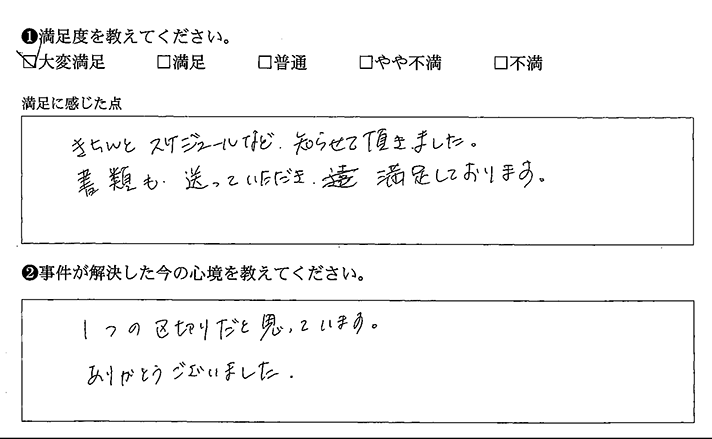 ❶満足度を教えてください。
☑大変満足 □満足 □普通 □やや不満 □不満
満足に感じた点
きちんと スケジュールなど、知らせて頂きました。
書類も、送っていただき、満足しております。
❷事件が解決した今の心境を教えてください。
1つの区切りだと思っています。
ありがとうございました。